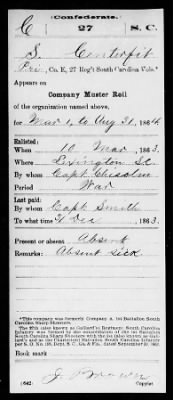 Confederate.
C 27 S.C.
S. Centerfit
Pvt, Co. E, 27 Reg't South Carolina Vols.*
Appears on
Company Muster Roll
of the organization named above,
for Mar 1, to Aug 31, 1864.
Enlisted:
When 10 Mar, 1863.
Where Lexington SC.
By whom Capt Chisolm
Period War
Last paid:
By whom Capt Smith
To what time 31 Dec, 1863.
Present or absent Absent
Remarks: Absent sick.
*This company was formerly Company A, 1st Battalion South
Carolina Sharp Shooters.
Book mark
(642)
Copyist.